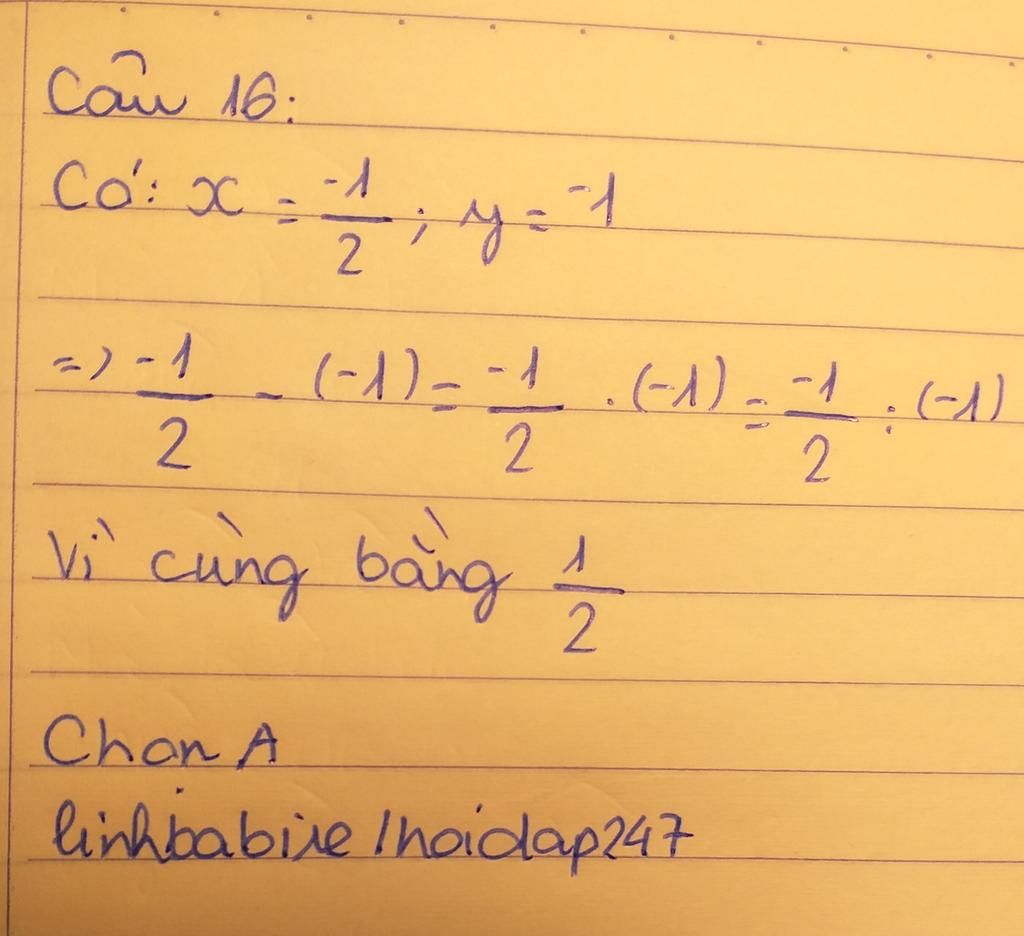 Câu 16:
Có: x = -1/2 ; y = -1
=> -1/2 - (-1) = -1/2 . (-1) = -1/2 : (-1)
Vì cùng bằng 1/2
Chọn A
linhbabie/hoidap247